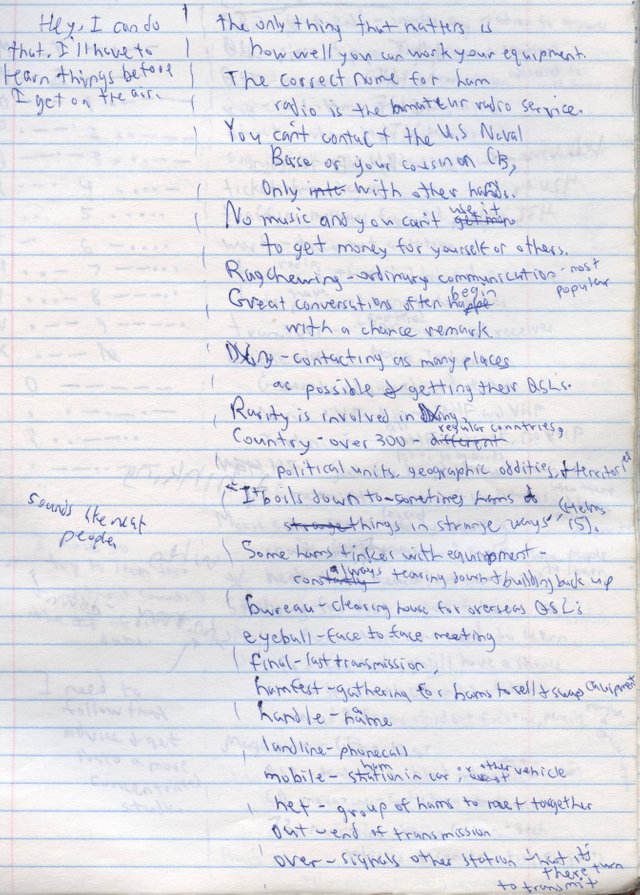 Hey, I can do
that. I'll have to
learn things before
I get on the air.
the only thing that matters is
how well you can work your equipment.
The correct name for ham
radio is the amateur radio service.
You can't contact the U.S Naval
Base or your cousin on CB,
Only with other hams.
No music and you can't use it
to get money for yourself or others.
Ragchewing - ordinary communication - most
popular
Great conversations often begin
with a chance remark.
DXing - contacting as many places
as possible & getting their QSL's.
Rarity is involved in DXing
Country - over 300 - regular contries,
political units, geographic oddities, & territories
"It boils down to - sometimes hams do
things in strange ways" (Helms
15).
sounds like neat
people
Some hams tinker with equipment -
always tearing down & building back up
bureau - clearing house for overseas QSL's
eyeball - face to face meeting
final - last transmission,
hamfest - gathering for hams to sell & swap equipment
handle - name
landline - phonecall
mobile - ham station in car, or other vehicle
net - group of hams to meet together
out - end of transmission
over - signals other station that it's
there turn
to transmit